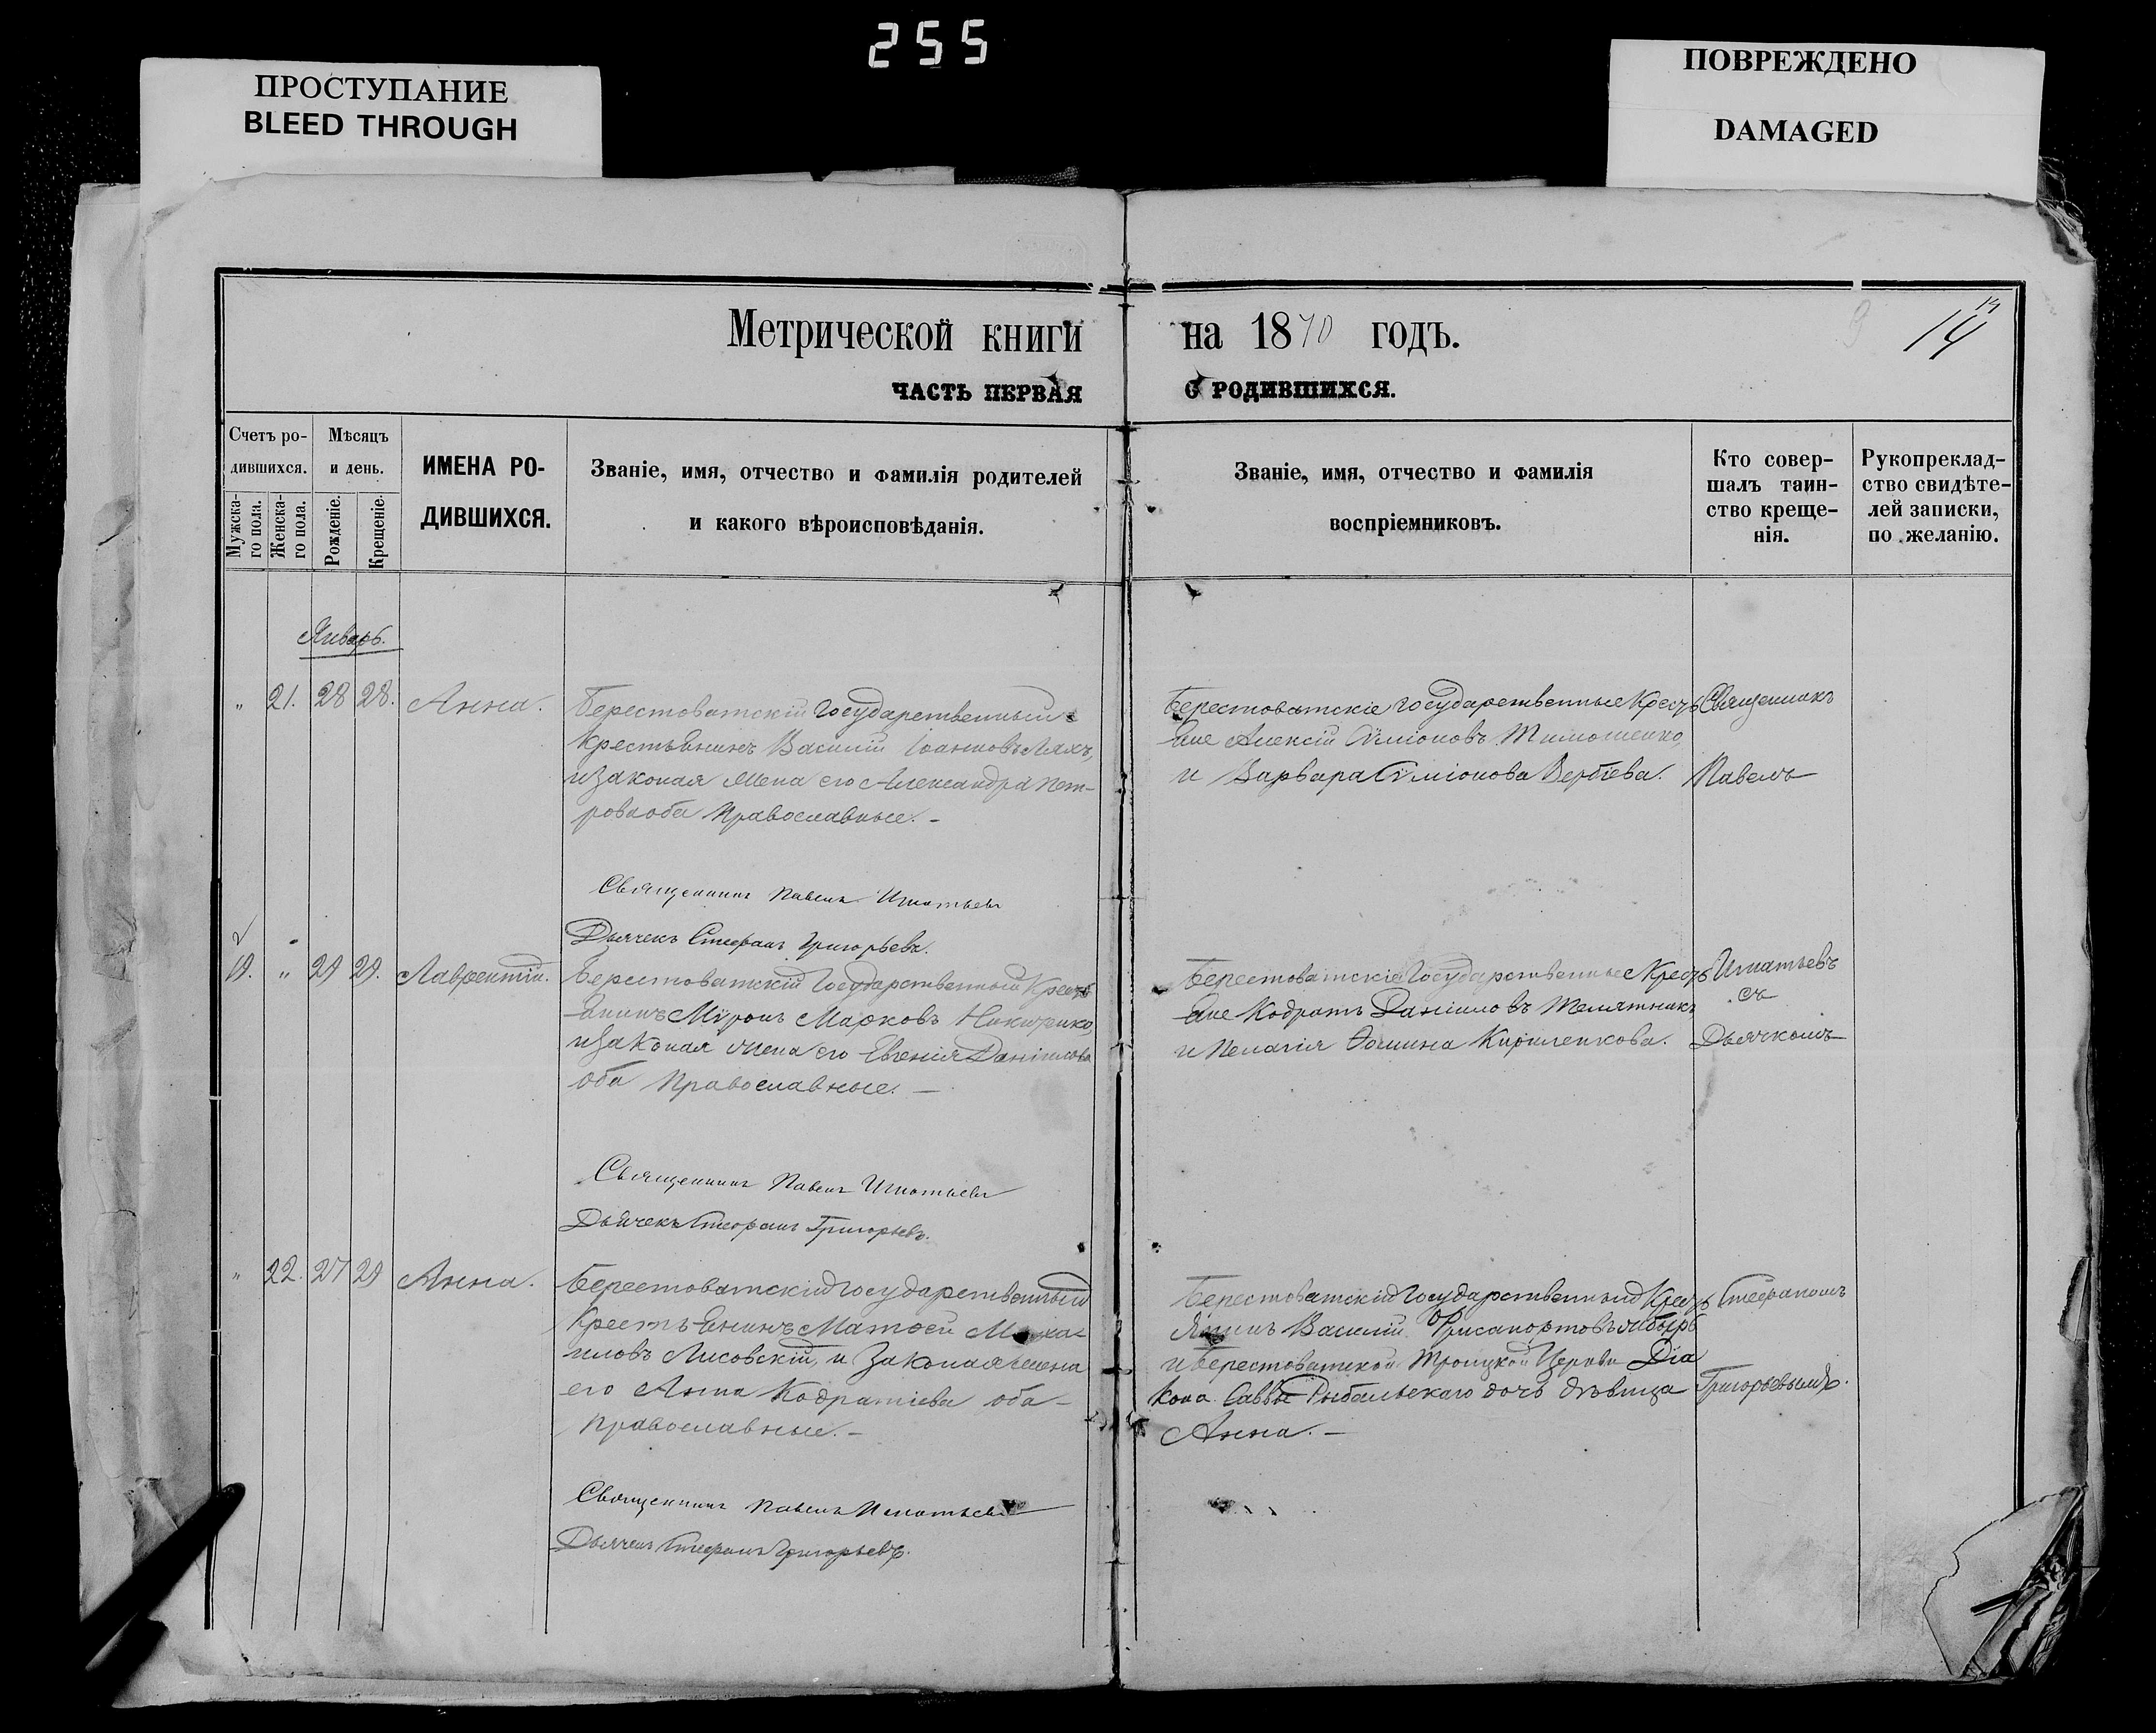 255
ПРОСТУПАНИЕ
BLEED THROUGH
ПОВРЕЖДЕНО
DAMAGED
14
Метрической книги на 1870 годъ.
ЧАСТЬ ПЕРВАЯ О РОДИВШИХСЯ.
Счетъ ро-
дившихся.
Мужска-
го пола.
Женска-
го пола.
Мѣсяцъ
и день.
Рожденіе.
Крещеніе.
ИМЕНА РО-
ДИВШИХСЯ.
Званіе, имя, отчество и фамилія родителей
и какого вѣроисповѣданія.
Званіе, имя, отчество и фамилія
воспріемниковъ.
Кто совер-
шалъ таин-
ство креще-
нія.
Рукопреклад-
ство свидѣте-
лей записки,
по желанію.
Январь.
" 21. 28 28. Анна.
Берестоватскій Государственный
крестьянинъ Василій Іоанновъ Ляхъ,
и законая жена его Александра Пет-
рова оба православные. -
Священникъ Павелъ Игнатьевъ
Дьячекъ Стефанъ Григорьевъ.
Берестоватскіе государственные Крестъ
яне Алексій Симіоновъ Тимошенко,
и Варвара Симіонова Вербіева.
Священникъ
Павелъ
19. " 29 29. Лаврентій.
Берестоватскій Государственный Кресть
янинъ Миронъ Марковъ Никитенко,
и законая жена его Евгенія Даніилова
оба православные. —
Священникъ Павелъ Игнатьевъ
Дьячекъ Стефанъ Григорьевъ.
Берестоватскіе Государственные Кресть
яне Кодратъ Даніиловъ Телятникъ
и Пелагія Ѳомина Кириленкова.
Игнатьевъ
съ
Дьячкомъ
" 22. 27 29 Анна.
Берестоватскій государственный
Крестьянинъ Матѳей Михаи-
ловъ Лисовскій, и законая жена
его Анна Кодратіева оба -
православные. -
Священникъ Павелъ Игнатьевъ
Дьячекъ Стефанъ Григорьевъ.
Берестоватскій Государственный Кресть
янинъ Василій
и Берестоватской Троицкой Церкви Діа
кона Саввы Рыбальскаго дочь дѣвица
Анна. -
Стефаномъ
Григорьевымъ.